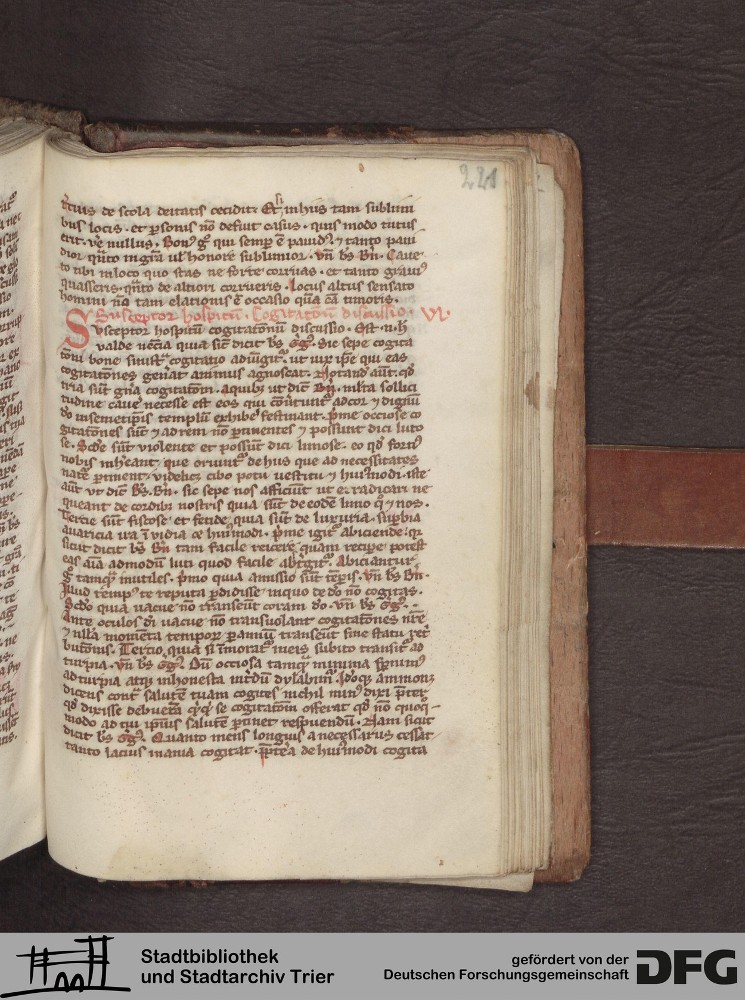 221
de scola deitatis cecidit. Et si in hiis tam sublimi
bus locis. et personis nō defuit casus. quis modo tutus
erit. vͤ nullus. Bonꝰ gͦ qui semp ē pavidꝰ ⁊ tanto paui
dior qͣnto in gr̄a ul̓ honore sublimior. vn̄ bs̄ Bn̄. Caue
to tibi in loco quo stas ne forte corruas. et tanto grauiꝰ
quasseris. qͣnto de altiori corrueris. Locus altus sensato
homini nō tam elationis ē occasio quā cā timoris.
Susceptor hospitū. Cogitationū discussio. VI.
Susceptor hospitū cogitationū discussio. Est. n. h
valde nēcīa quia sic̄ dicit bs̄ Gg̅. Sic sepe cogita
tōni bone sinistͣ cogitatio adiūgitͬ. ut uix ip̄e qui eas
cogitatōnes gen̄at animus agnoscat. Notand̄ aūt. qd̄
tria sūt gn̄a cogitatōnū. a quibꝫ ut dic̄ Bn̄. mlta sollici
tudine cauē necesse est eos qui ad cor ⁊ dignū
do in semetipsis templū exhibē festinant. Prime occiose co
gitatōnes sūt ⁊ ad rem nō ꝑtinentes ⁊ possunt dici luto
se. Scd̄e sūt violente et possūt dici limose. eo qd̄ fortiꝰ
nobis inhereant. que oriunt̄ de hiis que ad necessitates
nat̄e ꝑtinent. videlicꝫ cibo potu uestitu ⁊ huiꝰmodi. iste
aūt ut dic̄ bs̄. Bn̄. sic sepe nos afficiūt ut eradicari ne
queant de cordibꝫ nostris quia sūt de eodē limo qͦ ⁊ nos.
Tercie sūt et fetide. quia sūt de luxuria. supbia
auaricia ira īvidia ce huiꝰmodi. Prime igit̄ abiciende. qͣ
sicut dicit bs̄ Bn̄ tam facile reicere quam recipe potest
eas aīa admodū luti quod facile abt̓gitͬ. Abiciantur
gͦ tamqͣ inutiles. primo quia amissio sūt tēpꝫis. vn̄ bs̄ Bn̄.
Illud tempꝰ te reputa ꝑdidisse in quo de do nō cogitas.
Scd̄o quia uacue nō transeūt coram do. vn̄ bs̄ Gg̅.
Ante oculos dī uacue nō transuolant cogitatōnes nr̄e
⁊ nulla momēta tempoꝝ ꝑ animū transeūt sine statu ret̓
butōnis. Tercio quia si īmoratͬ in eis subito transitͬ ad
turpia. vn̄ bs̄ Gg̅. Dū occiosa tamqͣ minima
ad turpia atqꝫ inhonesta int̓dū dylabimͬ. Idoqꝫ
dicens contͣ salutē tuam cogites nichil minꝰ dixi ꝑter
qd̄ dixisse debueram se cogitatōni offerat qd̄
modo ad tui ipsius salutē ꝑtinet respuendū. Nam sicut
dicit bs̄ Gg̅. Quanto mens longius a necessariis cessat
tanto lacius inania cogitat. ꝑpt̄ea de huiꝰmodi cogita
Stadtbibliothek
und Stadtarchiv Trier
gefördert von der
Deutschen Forschungsgemeinschaft
DFG